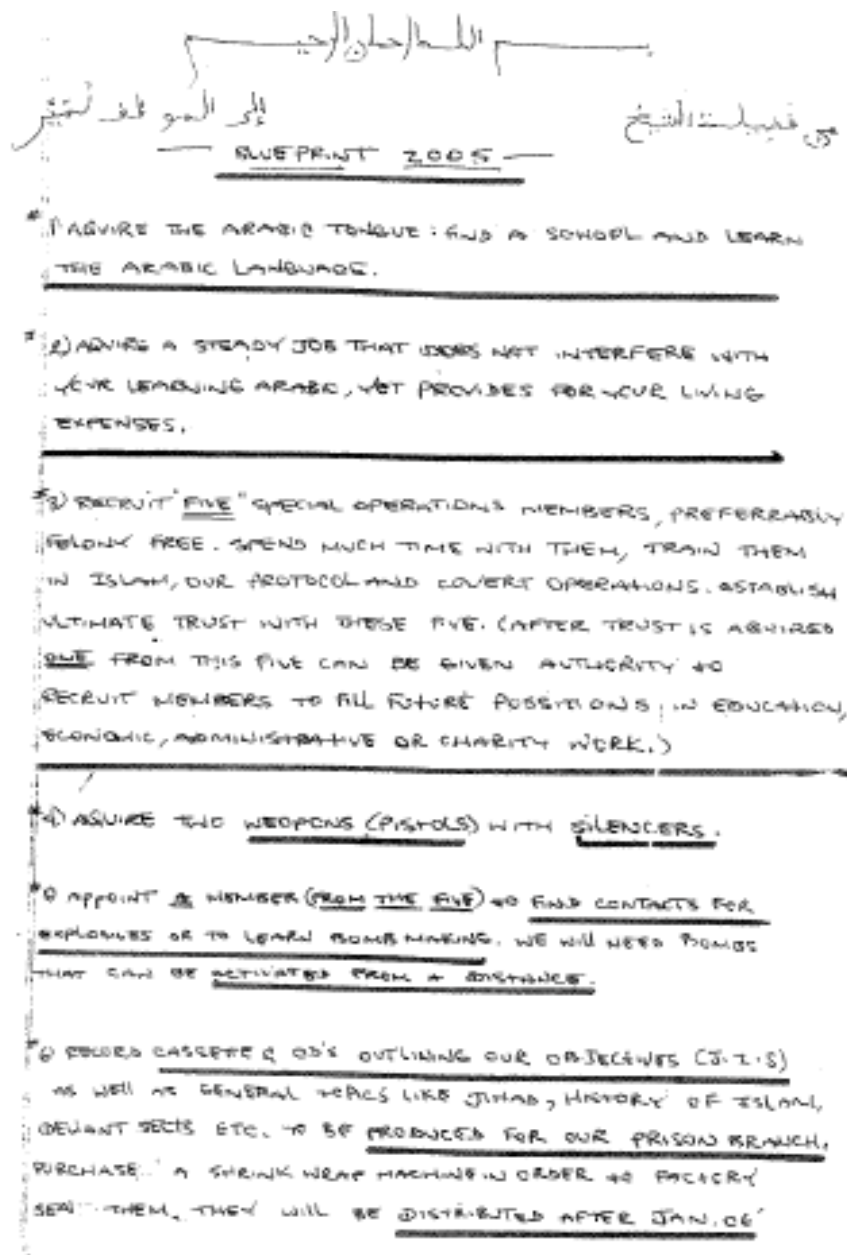 بسم الله الرحمان الرحيم
إلى
الشيخ
— BLUEPRINT 2005 —
* 1) AQUIRE THE ARABIC TONGUE: FIND A SCHOOL AND LEARN
THE ARABIC LANGUAGE.
* 2) AQUIRE A STEADY JOB THAT DOES NOT INTERFERE WITH
YOUR LEARNING ARABIC, YET PROVIDES FOR YOUR LIVING
EXPENSES.
* 3) RECRUIT "FIVE" SPECIAL OPERATIONS MEMBERS, PREFERRABLY
FELONY FREE. SPEND MUCH TIME WITH THEM, TRAIN THEM
IN ISLAM, OUR PROTOCOL AND COVERT OPERATIONS. ESTABLISH
ULTIMATE TRUST WITH THESE FIVE. (AFTER TRUST IS AQUIRED
ONE FROM THIS FIVE CAN BE GIVEN AUTHORITY TO
RECRUIT MEMBERS TO FILL FUTURE POSSITIONS; IN EDUCATION,
ECONOMIC, ADMINISTRATIVE OR CHARITY WORK.)
* 4) AQUIRE TWO WEOPONS (PISTOLS) WITH SILENCERS.
* 5) APPOINT A MEMBER (FROM THE FIVE) TO FIND CONTACTS FOR
EXPLOSIVES OR TO LEARN BOMB MAKING. WE WILL NEED BOMBS
THAT CAN BE ACTIVATED FROM A DISTANCE.
* 6) RECORD CASSETTE & CD'S OUTLINING OUR OBJECTIVES (J.I.S)
AS WELL AS GENERAL TOPICS LIKE JIHAD, HISTORY OF ISLAM,
DEVIANT SECTS ETC. TO BE PRODUCED FOR OUR PRISON BRANCH.
PURCHASE A SHRINK WRAP MACHINE IN ORDER TO FACTORY
SEAL THEM. THEY WILL BE DISTRIBUTED AFTER JAN. 06'